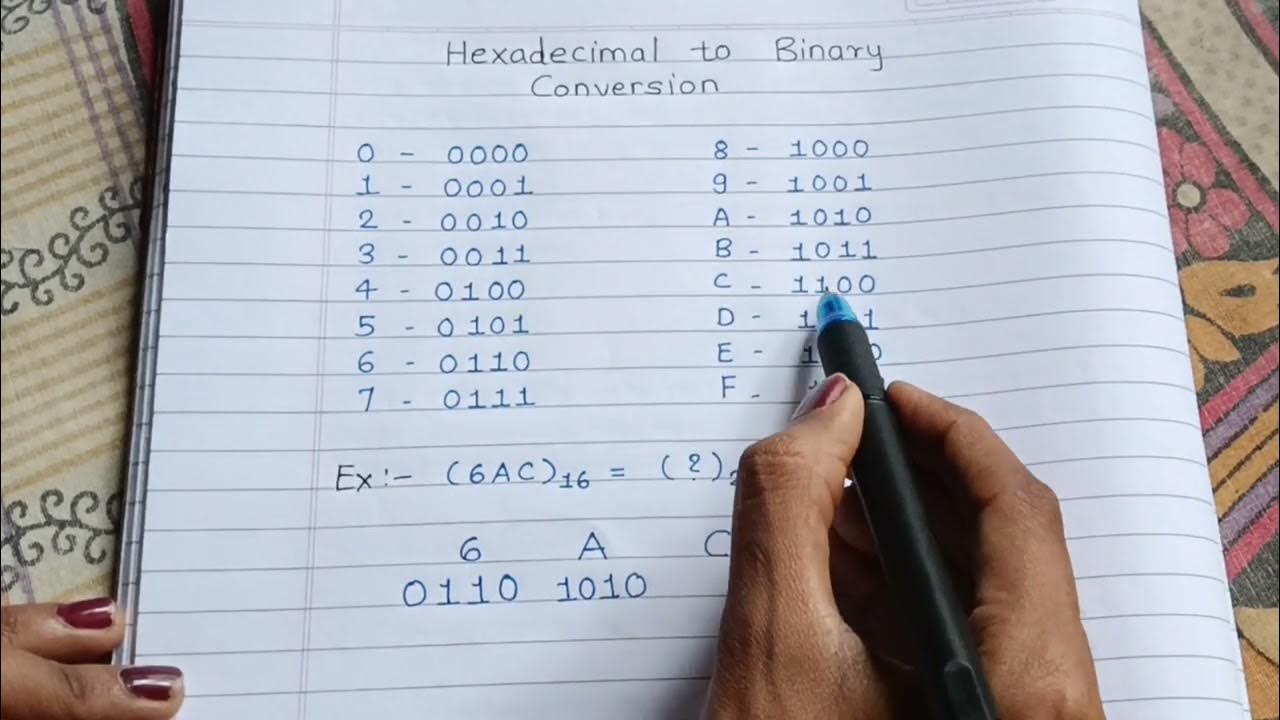 Hexadecimal to Binary
Conversion
0 - 0000
1 - 0001
2 - 0010
3 - 0011
4 - 0100
5 - 0101
6 - 0110
7 - 0111
8 - 1000
9 - 1001
A - 1010
B - 1011
C - 1100
D -
E -
F -
Ex:- (6AC)16 = (?)2
6 A C
0110 1010